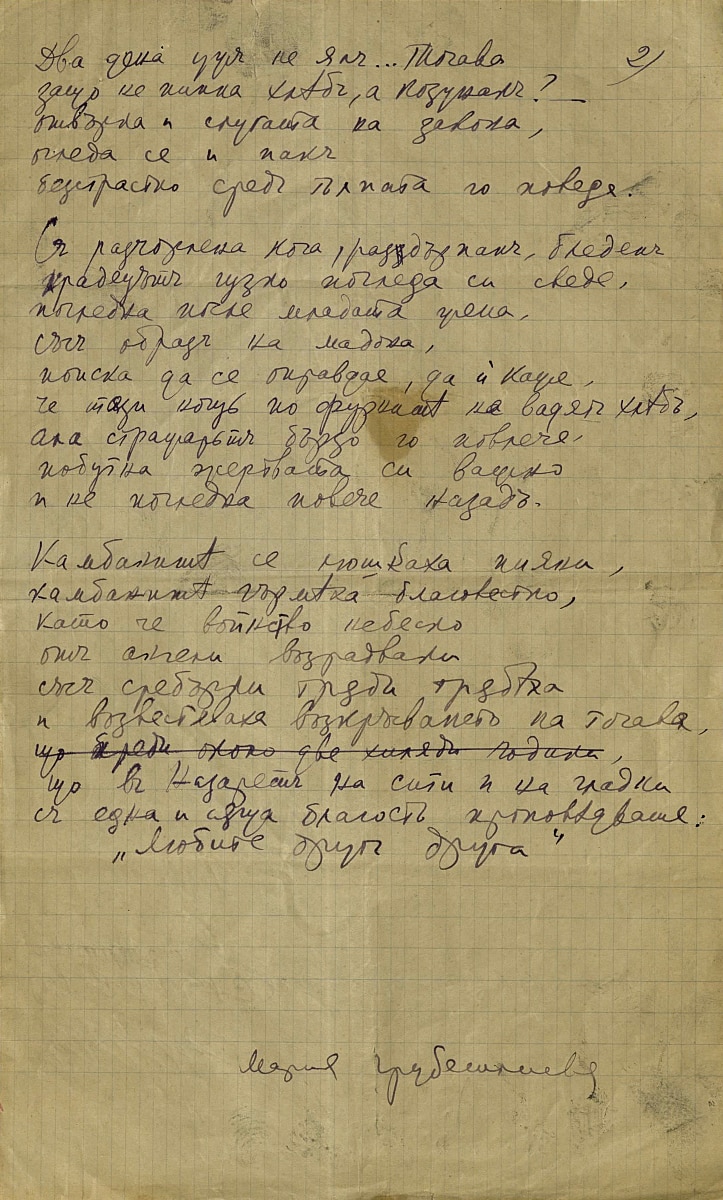 Два дена щумъ не ялъ... Тогава 2)
защо не пипна хлѣбъ, а козунакъ? —
отвърна и слугата на закона,
огледа се и пакъ
безстрастно средъ тълпата го поведе.
Съ разчорлена коса, раздърпанъ, бледенъ
крадецътъ гузно погледа си сведе,
погледна после младата жена,
със образъ на мадона,
поиска да се оправдае, да ѝ каже,
че тази нощь по фурнитѣ не вадятъ хлѣбъ,
ала стражарьтъ бързо го повлече.
побутна жертвата си важно
и не погледна повече назадъ.
Камбанитѣ се люшкаха пияни,
камбанитѣ гърмѣха благовестно,
като че войнство небесно
отъ ангели възрадвани
със сребърни тръби тръбѣха
и возвестяваха возкръсването на тогава,
що преди около две хиляди години,
що въ Назаретъ на сити и на гладни
съ една и съща благость проповѣдваше:
„Любите другъ друга"
Мария Грубешлиева